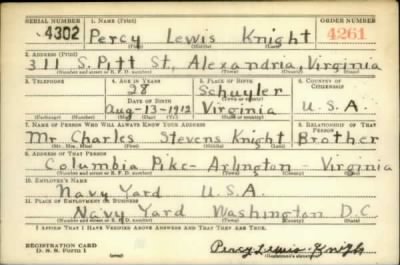 SERIAL NUMBER 1. NAME (Print) ORDER NUMBER
4302 Percy Lewis Knight 4261
(First) (Middle) (Last)
2. ADDRESS (Print)
311 S. Pitt St, Alexandria, Virginia
(Number and street or R. F. D. number) (Town) (County) (State)
3. TELEPHONE 4. AGE IN YEARS 5. PLACE OF BIRTH 6. COUNTRY OF CITIZENSHIP
28 Schuyler
DATE OF BIRTH (Town or county)
Aug-13-1912 Virginia U.S.A.
(Exchange) (Number) (Mo.) (Day) (Yr.) (State or country)
7. NAME OF PERSON WHO WILL ALWAYS KNOW YOUR ADDRESS 8. RELATIONSHIP OF THAT PERSON
Mr Charles Stevens Knight Brother
(Mr., Mrs., Miss) (First) (Middle) (Last)
9. ADDRESS OF THAT PERSON
Columbia Pike- Arlington Virginia
(Number and street or R. F. D. number) (Town) (County) (State)
10. EMPLOYER'S NAME
Navy Yard U.S.A.
11. PLACE OF EMPLOYMENT OR BUSINESS
Navy Yard Washington D.C.
(Number and street or R. F. D. number) (Town) (County) (State)
I AFFIRM THAT I HAVE VERIFIED ABOVE ANSWERS AND THAT THEY ARE TRUE.
REGISTRATION CARD
D. S. S. Form 1 Percy Lewis Knight
(Registrant's signature)